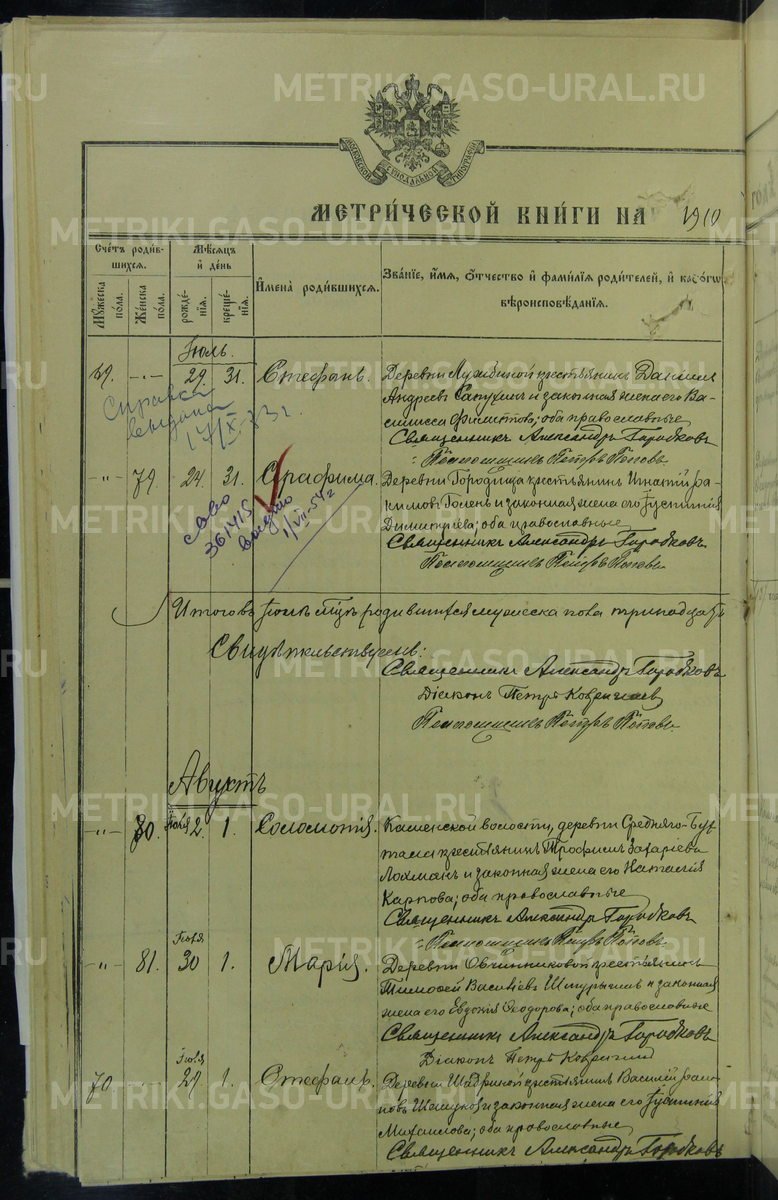 METRIKI.GASO-URAL.RU
МОСКОВСКОЙ СѴНОДАЛЬНОЙ ТИПОГРАФІИ
МЕТРИ́ЧЕСКОЙ КНИ́ГИ НА 1910
Сче́тъ роди́вшихся.
Мѣ́сяцъ и де́нь
И҆мена̀ роди́вшихся.
Зва́нїе, и҆́мя, ѻ҆́тчество и҆ фами́лїя роди́телей, и҆
вѣроисповѣ́данїя.
Му́жеска по́ла.
Же́нска по́ла.
рожде́нїя.
креще́нїя.
Іюль.
69. -"- 29. 31. Стефанъ.
Деревни крестьянинъ Даниилъ
Андреевъ и законная жена его Ва-
силисса оба православные
Священникъ Александръ Городковъ
Псаломщикъ Петръ Поповъ
Справка
выдана
17/X-73г
-"- 79. 24. 31. Серафима.
Деревни Городища крестьянинъ Игнатій
и законная жена его Іустинія
Димитріева; оба православные
Священникъ Александръ Городковъ
Псаломщикъ Петръ Поповъ
361415
выдано
1/VII-54г
Итого въ Іюлѣ родившихся мужеска пола тринадцать
Свидѣтельствуемъ:
Священникъ Александръ Городковъ
Діаконъ Петръ
Псаломщикъ Петръ Поповъ
Августъ
-"- 80. Іюля 2. 1. Соломонія.
Каменской волости, деревни Средняго-
крестьянинъ Трофимъ Захаріевъ
Лохманъ и законная жена его Наталія
Карпова; оба православные
Священникъ Александръ Городковъ
Псаломщикъ Петръ Поповъ
-"- 81. Іюля 30 1. Марія.
Деревни Овчинниковой крестьянинъ
Тимофей Василіевъ и законная
жена его Евдокія Ѳеодорова; оба православные
Священникъ Александръ Городковъ
Діаконъ Петръ
70 -"- Іюля 29 1. Стефанъ.
Деревни Шадриной крестьянинъ Василій
и законная жена его Іустинія
Михаилова; оба православные
Священникъ Александръ Городковъ